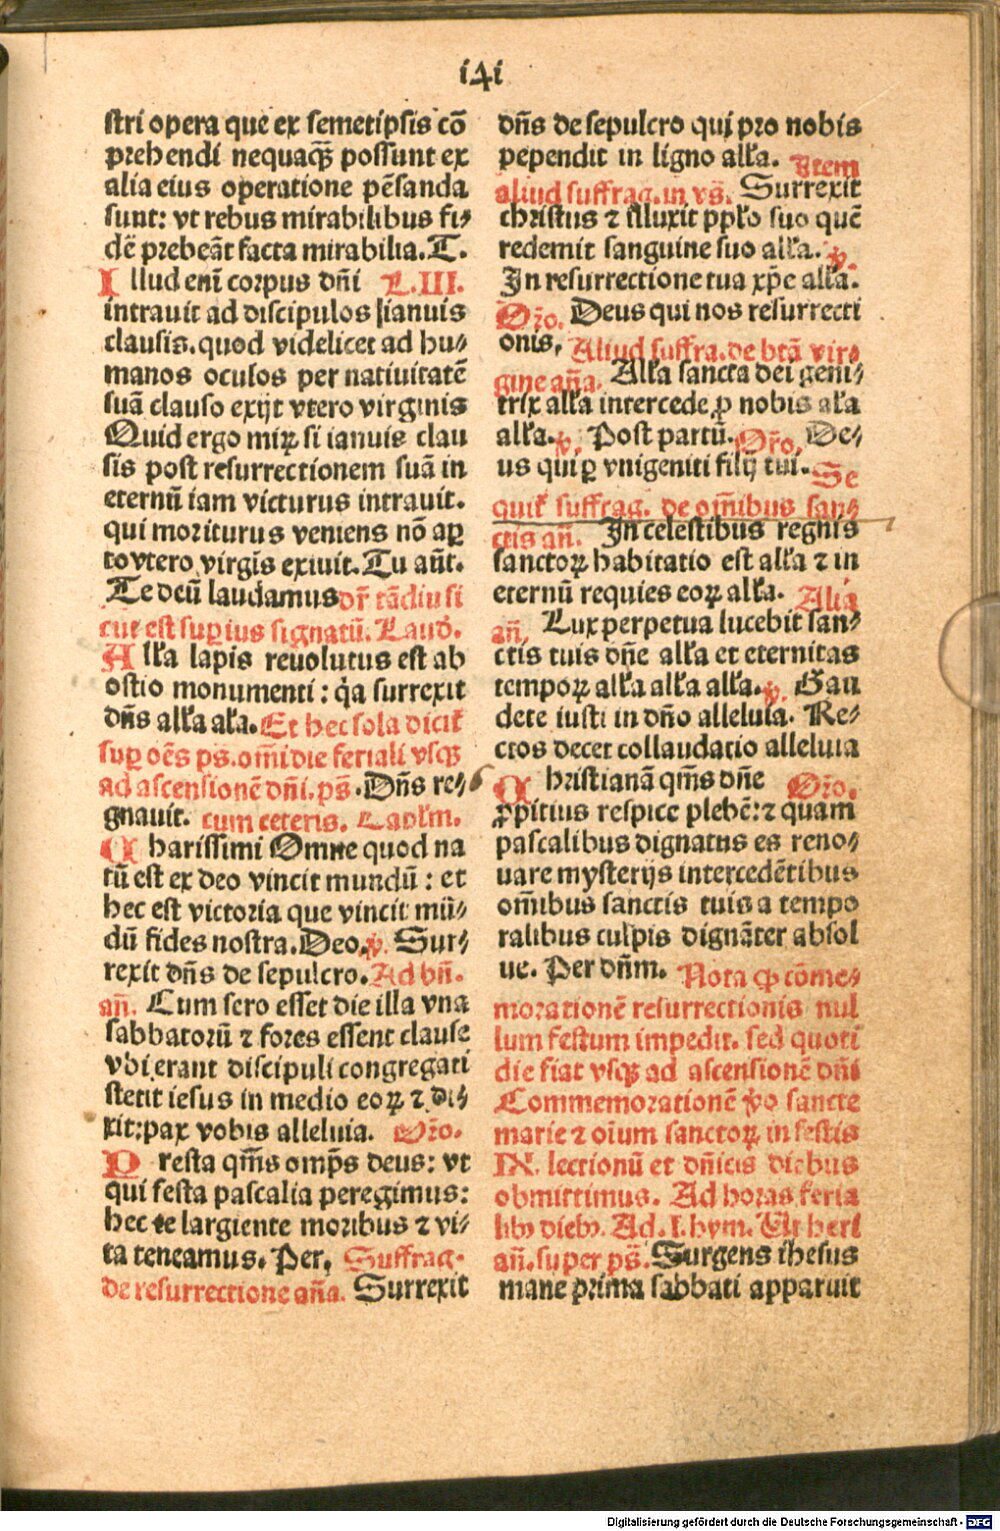 i4i
stri opera que ex semetipsis cō
prehendi nequaqꝫ possunt ex
alia eius operatione pēsanda
sunt: vt rebus mirabilibus fi⸗
dē prebeāt facta mirabilia. T.
Illud enī corpus dn̄i L.III.
intrauit ad discipulos ianuis
clausis. quod videlicet ad hu⸗
manos oculos per natiuitatē
suā clauso exijt vtero virginis
Quid ergo miꝝ si ianuis clau
sis post resurrectionem suā in
eternū iam victurus intrauit.
qui moriturus veniens nō aꝑ
to vtero virgīs exiuit. Tu aūt.
Te deū laudamus dr̄ tādiu si
cut est suꝑius signatū. Laud.
Alła lapis reuolutus est ab
ostio monumenti: q̇a surrexit
dn̄s alła ała. Et hec sola dicit᷑
suꝑ oēs pš. om̄i die feriali vsqꝫ
ad ascensionē dn̄i. pš. Dn̄s re⸗
gnauit. cum ceteris. Capłm.
Charissimi Omne quod na
tū est ex deo vincit mundū: et
hec est victoria que vincit mū⸗
dū fides nostra. Deo. ꝟ. Sur⸗
rexit dn̄s de sepulcro. Ad bn̄.
an̄. Cum sero esset die illa vna
sabbatorū ⁊ fores essent clause
vbi erant discipuli congregati
stetit iesus in medio eoꝝ ⁊ di⸗
xit: pax vobis alleluia. Oro̅.
Presta qm̄s omp̄s deus: vt
qui festa pascalia peregimus:
hec te largiente moribus ⁊ vi⸗
ta teneamus. Per. Suffrag.
de resurrectione an̄a. Surrexit
dn̄s de sepulcro qui pro nobis
pependit in ligno alła. Item
aliud suffrag. in vš. Surrexit
christus ⁊ illuxit ppło suo quē
redemit sanguine suo alła. ꝟ.
In resurrectione tua xp̄e alła.
Oro̅. Deus qui nos resurrecti
onis. Aliud suffra. de btā vir⸗
gine an̄a. Alła sancta dei geni⸗
trix alła intercede ꝓ nobis ała
alła. ꝟ. Post partū. Oro̅. De⸗
us qui ꝑ vnigeniti filij tui. Se
quit᷑ suffrag. de om̄ibus san⸗
ctis an̄. In celestibus regnis
sanctoꝝ habitatio est alła ⁊ in
eternū requies eoꝝ alła. Alia
an̄. Lux perpetua lucebit san⸗
ctis tuis dn̄e alła et eternitas
tempoꝝ alła alła alła. ꝟ. Gau
dete iusti in dn̄o alleluia. Re⸗
ctos decet collaudatio alleluia
Christianā qm̄s dn̄e Oro̅.
ꝓpitius respice plebē: ⁊ quam
pascalibus dignatus es reno⸗
uare mysterijs intercedētibus
om̄ibus sanctis tuis a tempo
ralibus culpis dignāter absol
ue. Per dn̄m. Nota ꝙ cōme⸗
morationē resurrectionis nul
lum festum impedit. sed quoti
die fiat vsqꝫ ad ascensionē dn̄i
Commemorationē ꝟo sancte
marie ⁊ oīum sanctoꝝ in festis
IX. lectionū et dn̄icis diebus
obmittimus. Ad horas feria
libꝰ diebꝰ. Ad .I. hym. Vt heri
an̄. super pš. Surgens ihesus
mane prima sabbati apparuit
Digitalisierung gefördert durch die Deutsche Forschungsgemeinschaft - DFG